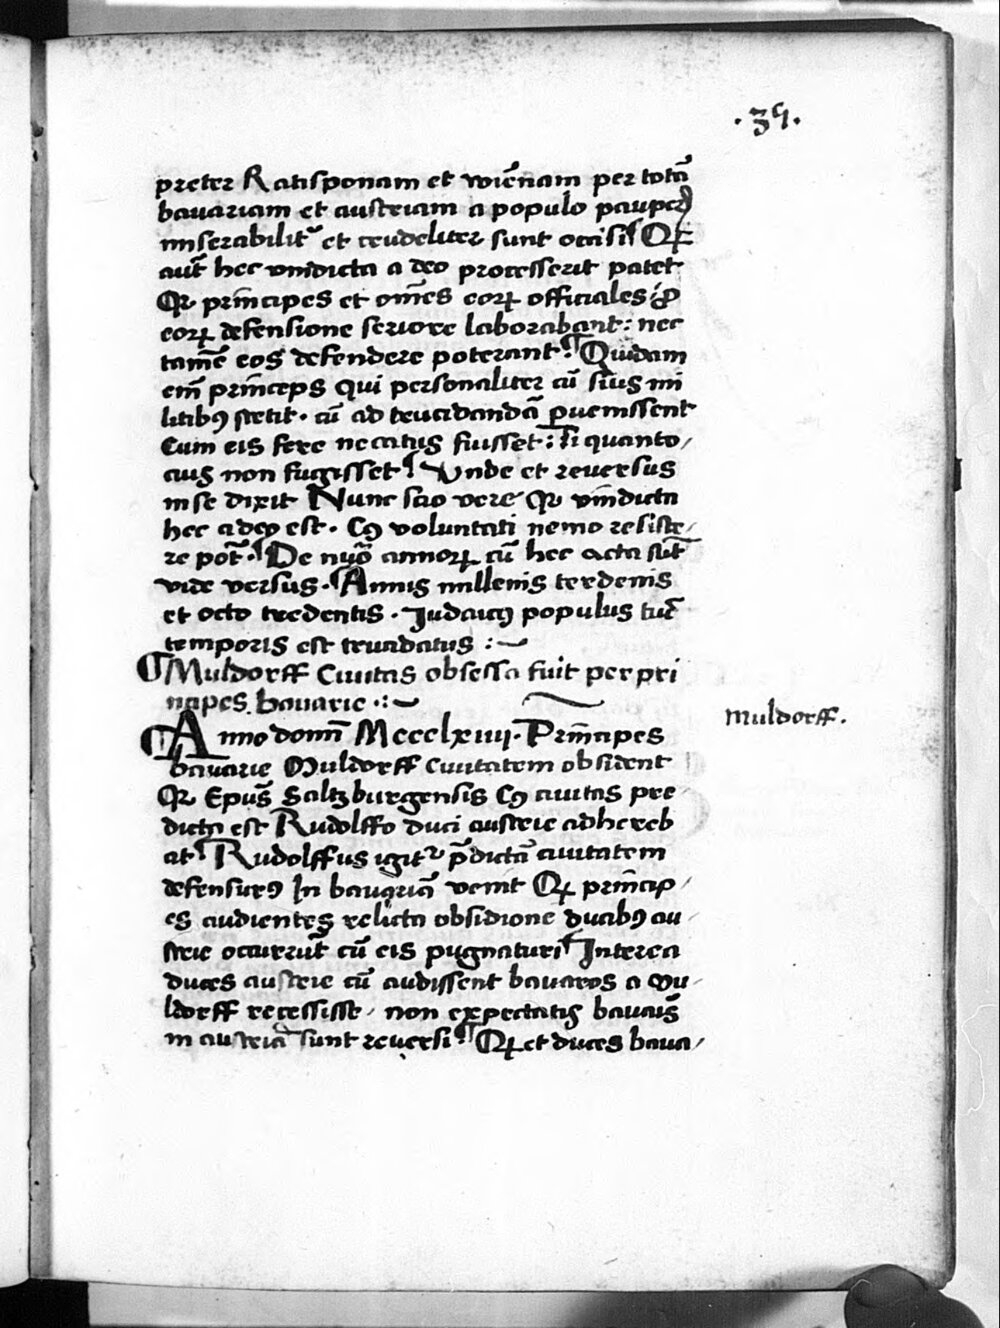 .39.
preter Ratisponam et wiēnam per totā
bavariam et austriam a populo pauper̄
miserabilit᷑ et crudeliter sunt occisi Qꝫ
aut̄ hec vindicta a deo processerit patet
Qꝛ prīncipes et om̄es eorꝝ officiales p̄
eorꝝ defensione seriore laborabant: nec
tamē eos defendere poterant. Quidam
em̄ prīnceps qui personaliter cū suis mi
litibꝰ stetit. cū ad trucidandā puenissent
Cum eis fere necatus fuisset: si quanto/
cius non fugisset Unde et reversus
in se dixit Nunc scio vere Qꝛ vindicta
hec a deo est. Cꝰ voluntati nemo resiste/
re pot̄. De nuō annorꝝ cū hec acta sūt
vide versus. Annis millenis terdenis
et octo tredentis. Judaicꝰ populus tūc
temporis est trucidatus :~
Muldorff Civitas obsessa fuit per pri
ncipes bavarie .:~
Muldorff.
Anno domī Mccclxiiij. Prīncipes
bavarie Muldorff civitatem obsident
Qꝛ Epūs Saltzburgensis Cꝰ civitas pre
dicta est Rudolffo duci austrie adhereb
at Rudolffus igit᷑ p̄dictā civitatem
defensurꝰ In bavariā venit Qꝫ princip/
es audientes relicta obsidione ducibꝰ au/
strie occurrūt cū eis pugnaturi Interea
duces austrie cū audissent bavaros a Mu/
ldorff recessisse / non expectatis bavaris
in austriā sunt reversi Qꝫ et duces bava/